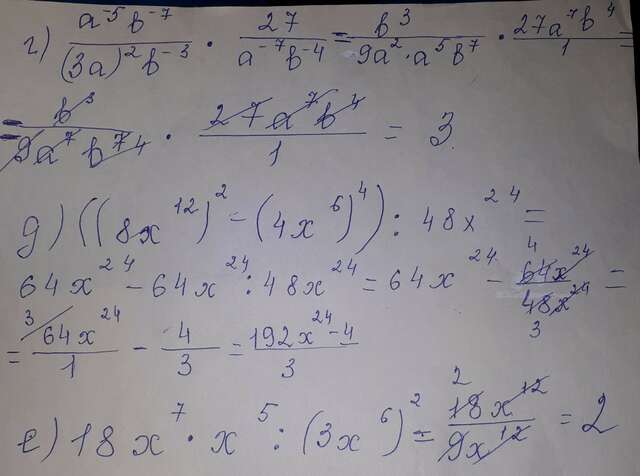 г) a⁻⁵b⁻⁷/((3a)²b⁻³) · 27/(a⁻⁷b⁻⁴) = b³/(9a²·a⁵b⁷) · 27a⁷b⁴/1 =
= b³/(9a⁷b⁷ 4) · 27a⁷b⁴/1 = 3.
д) ((8x¹²)² - (4x⁶)⁴) : 48x²⁴ =
64x²⁴ - 64x²⁴ : 48x²⁴ = 64x²⁴ - 4 64x²⁴/(48x²⁴ 3) =
= 3 64x²⁴/1 - 4/3 = (192x²⁴ - 4)/3
е) 18x⁷ · x⁵ : (3x⁶)² = 2 18x¹²/(9x¹²) = 2